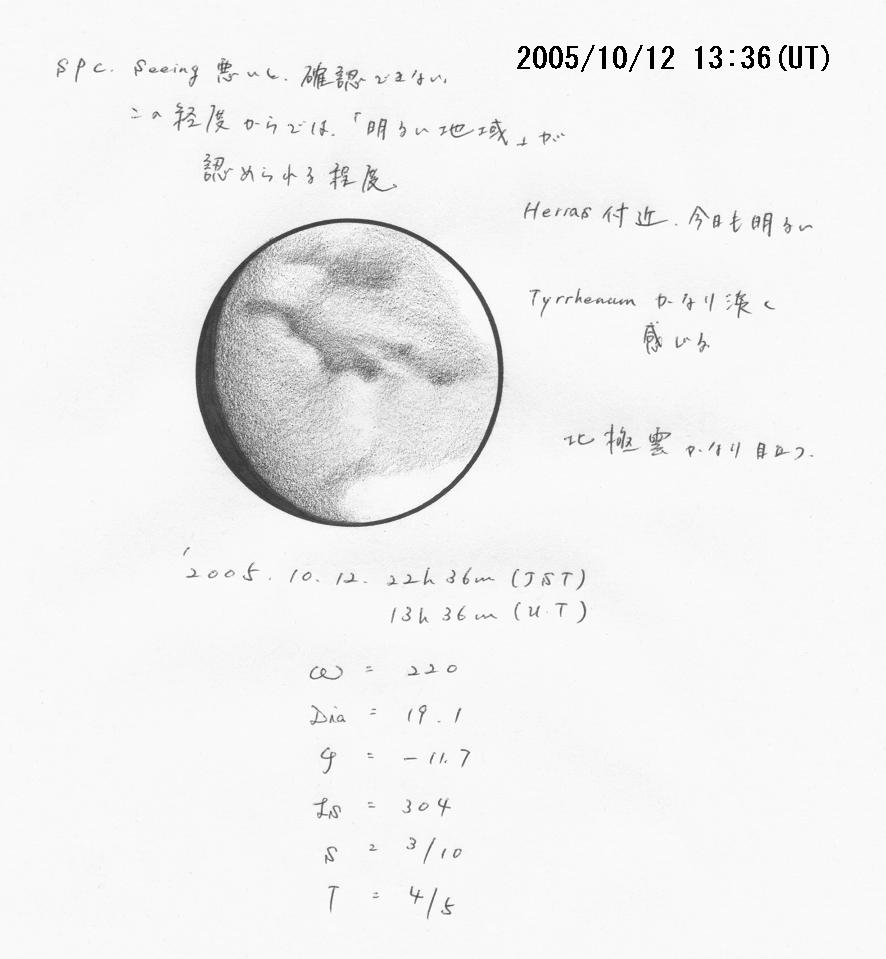 2005/10/12 13:36(UT)
SPC. Seeing 悪いと、確認できない。
この経度からでは、「明るい地域」が
認められる程度。
Herras 付近、今日も明るい
Tyrrhenum かなり淡く
感じる
北極雲 かなり目立つ.
'2005.10.12. 22h 36m (JST)
13h 36m (U.T)
ω = 220
Dia = 19.1
φ = -11.7
Ls = 304
S = 3/10
T = 4/5